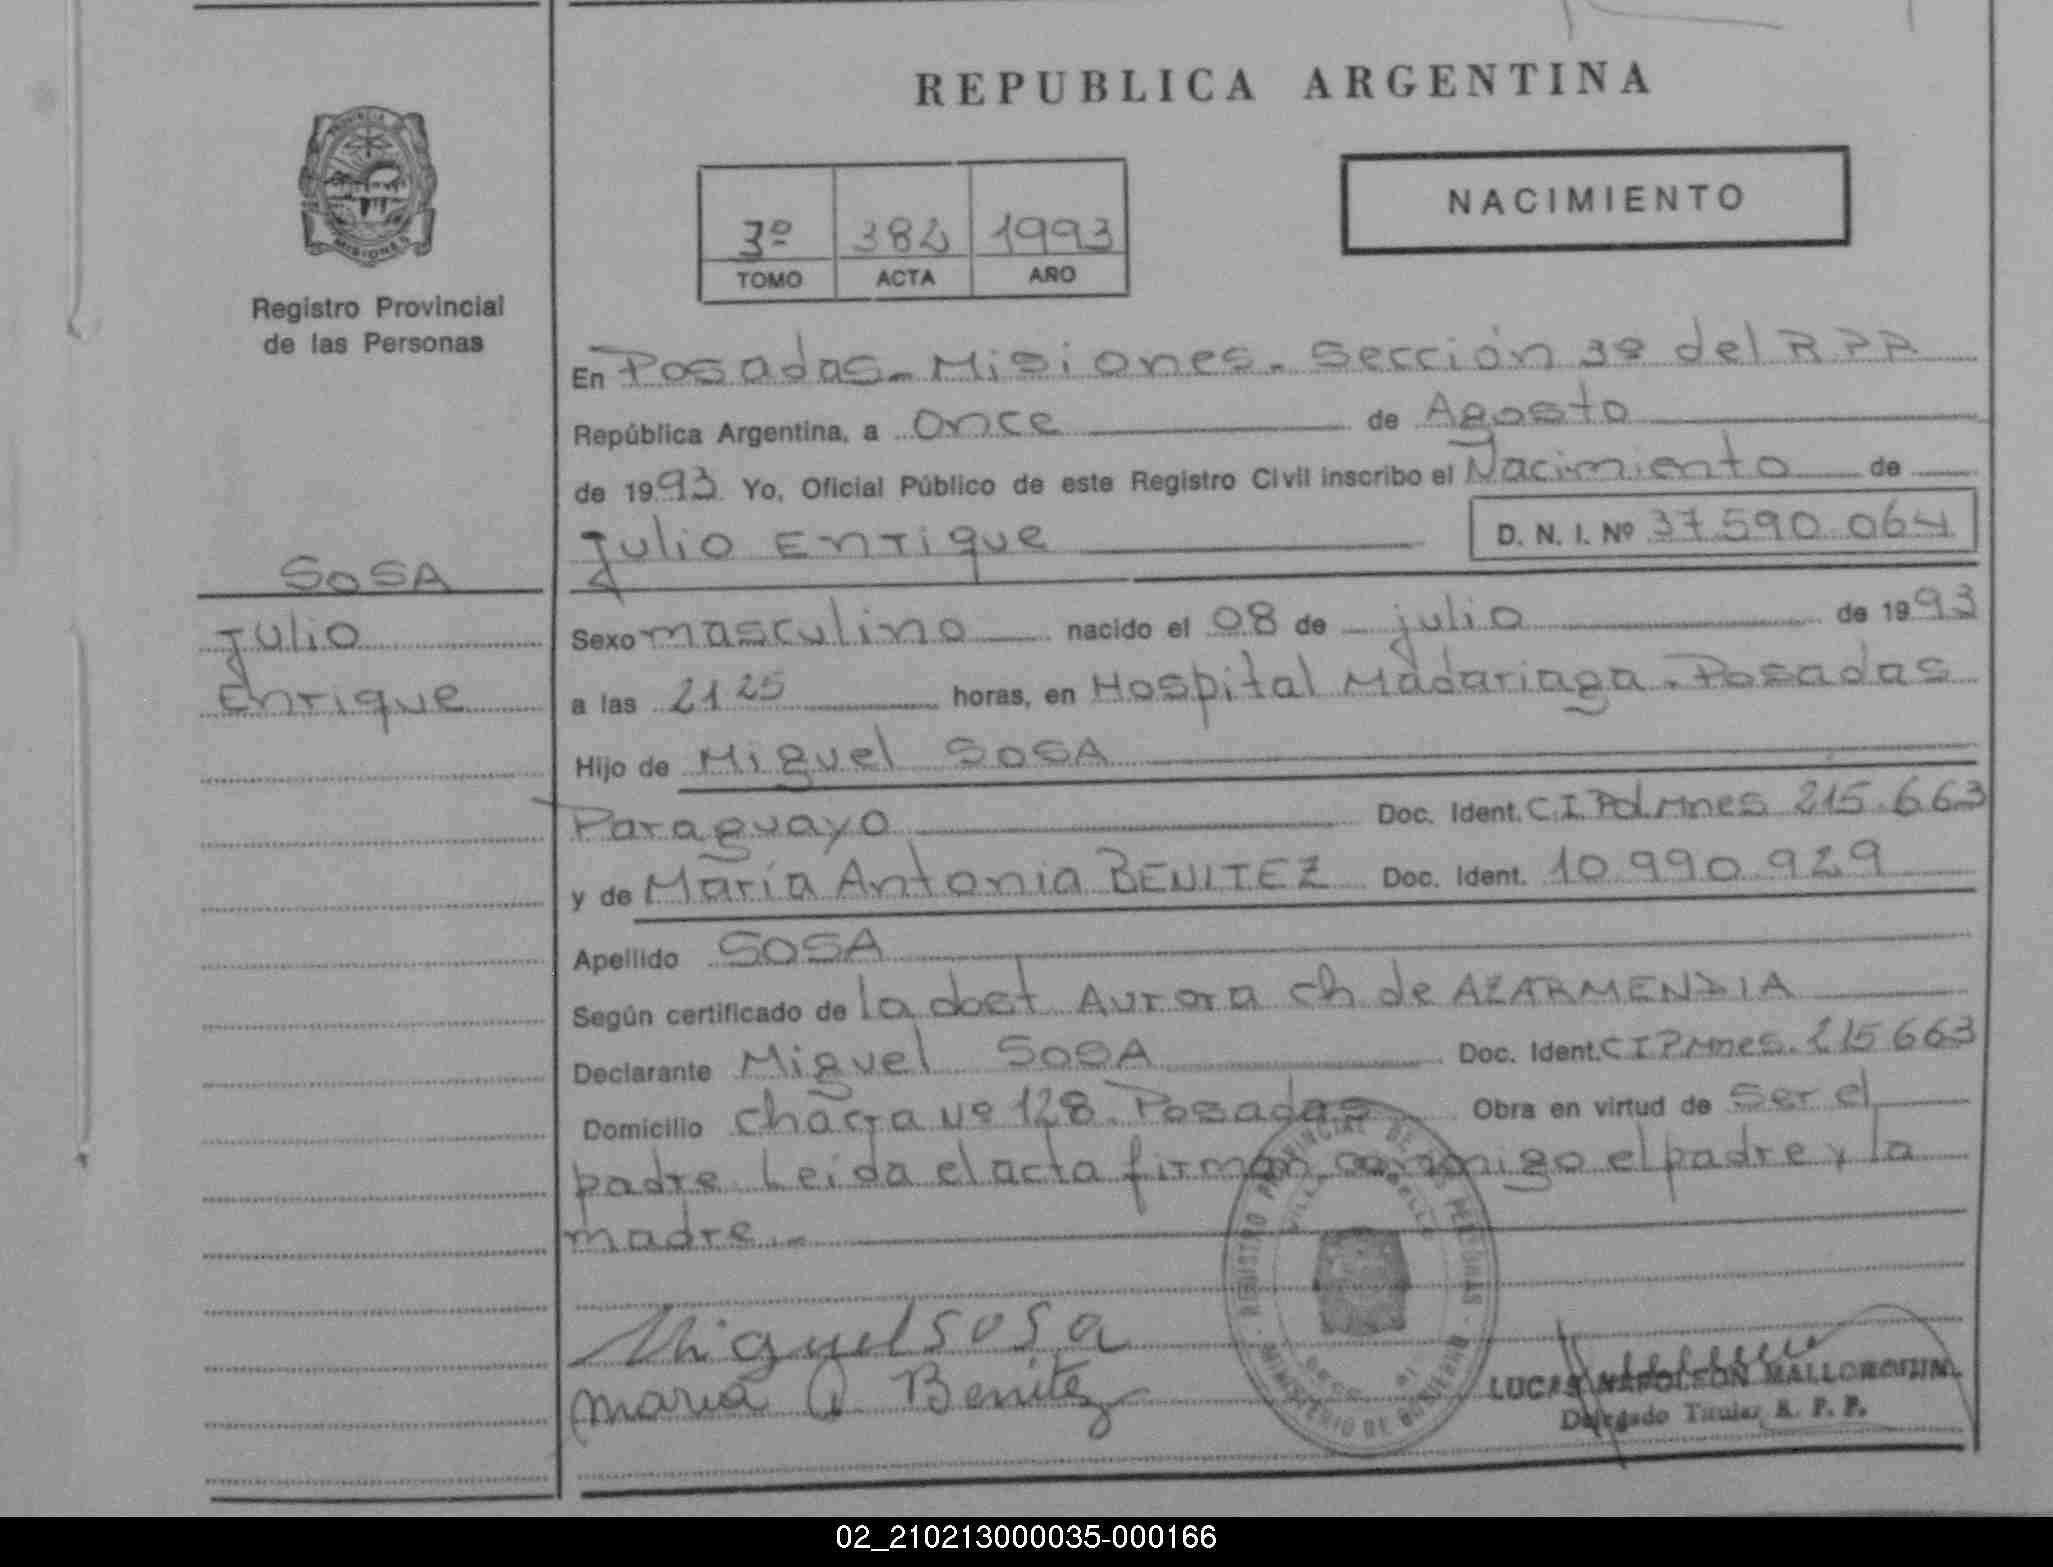 REPUBLICA ARGENTINA
NACIMIENTO
3º 384 1993
TOMO ACTA AÑO
PROVINCIA DE
MISIONES
Registro Provincial
de las Personas
SOSA
Julio
Enrique
En Posadas - Misiones. Sección 3º del R P P
República Argentina, a once de Agosto
de 1993 Yo, Oficial Público de este Registro Civil inscribo el Nacimiento de
Julio Enrique D. N. I. Nº 37.590.064
Sexo masculino nacido el 08 de julio de 1993
a las 21 25 horas, en Hospital Madariaga. Posadas
Hijo de Miguel SOSA
Paraguayo Doc. Ident. C.I. Pol. Mnes 215.663
y de María Antonia BENITEZ Doc. Ident. 10.990.929
Apellido SOSA
Según certificado de la obst Aurora ch de AZARMENDIA
Declarante Miguel SOSA Doc. Ident. C I P Mnes. 215 663
Domicilio chacra Nº 128. Posadas Obra en virtud de ser el
padre. Leída el acta firman conmigo el padre y la
madre.-
REGISTRO PROVINCIAL DE LAS PERSONAS
MINISTERIO DE GOBIERNO
Miguel Sosa
maria A Benitez
LUCAS NAPOLEON MALLORQUIN
Delegado Titular R. P. P.
02_210213000035-000166